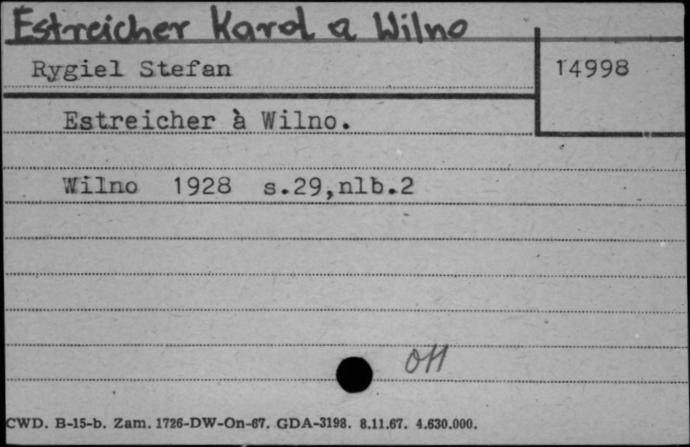 Estreicher Karol a Wilno
Rygiel Stefan
14998
Estreicher à Wilno.
Wilno 1928 s.29,nlb.2
CWD. B-15-b. Zam. 1726-DW-On-67. GDA-3198. 8.11.67. 4.630.000.